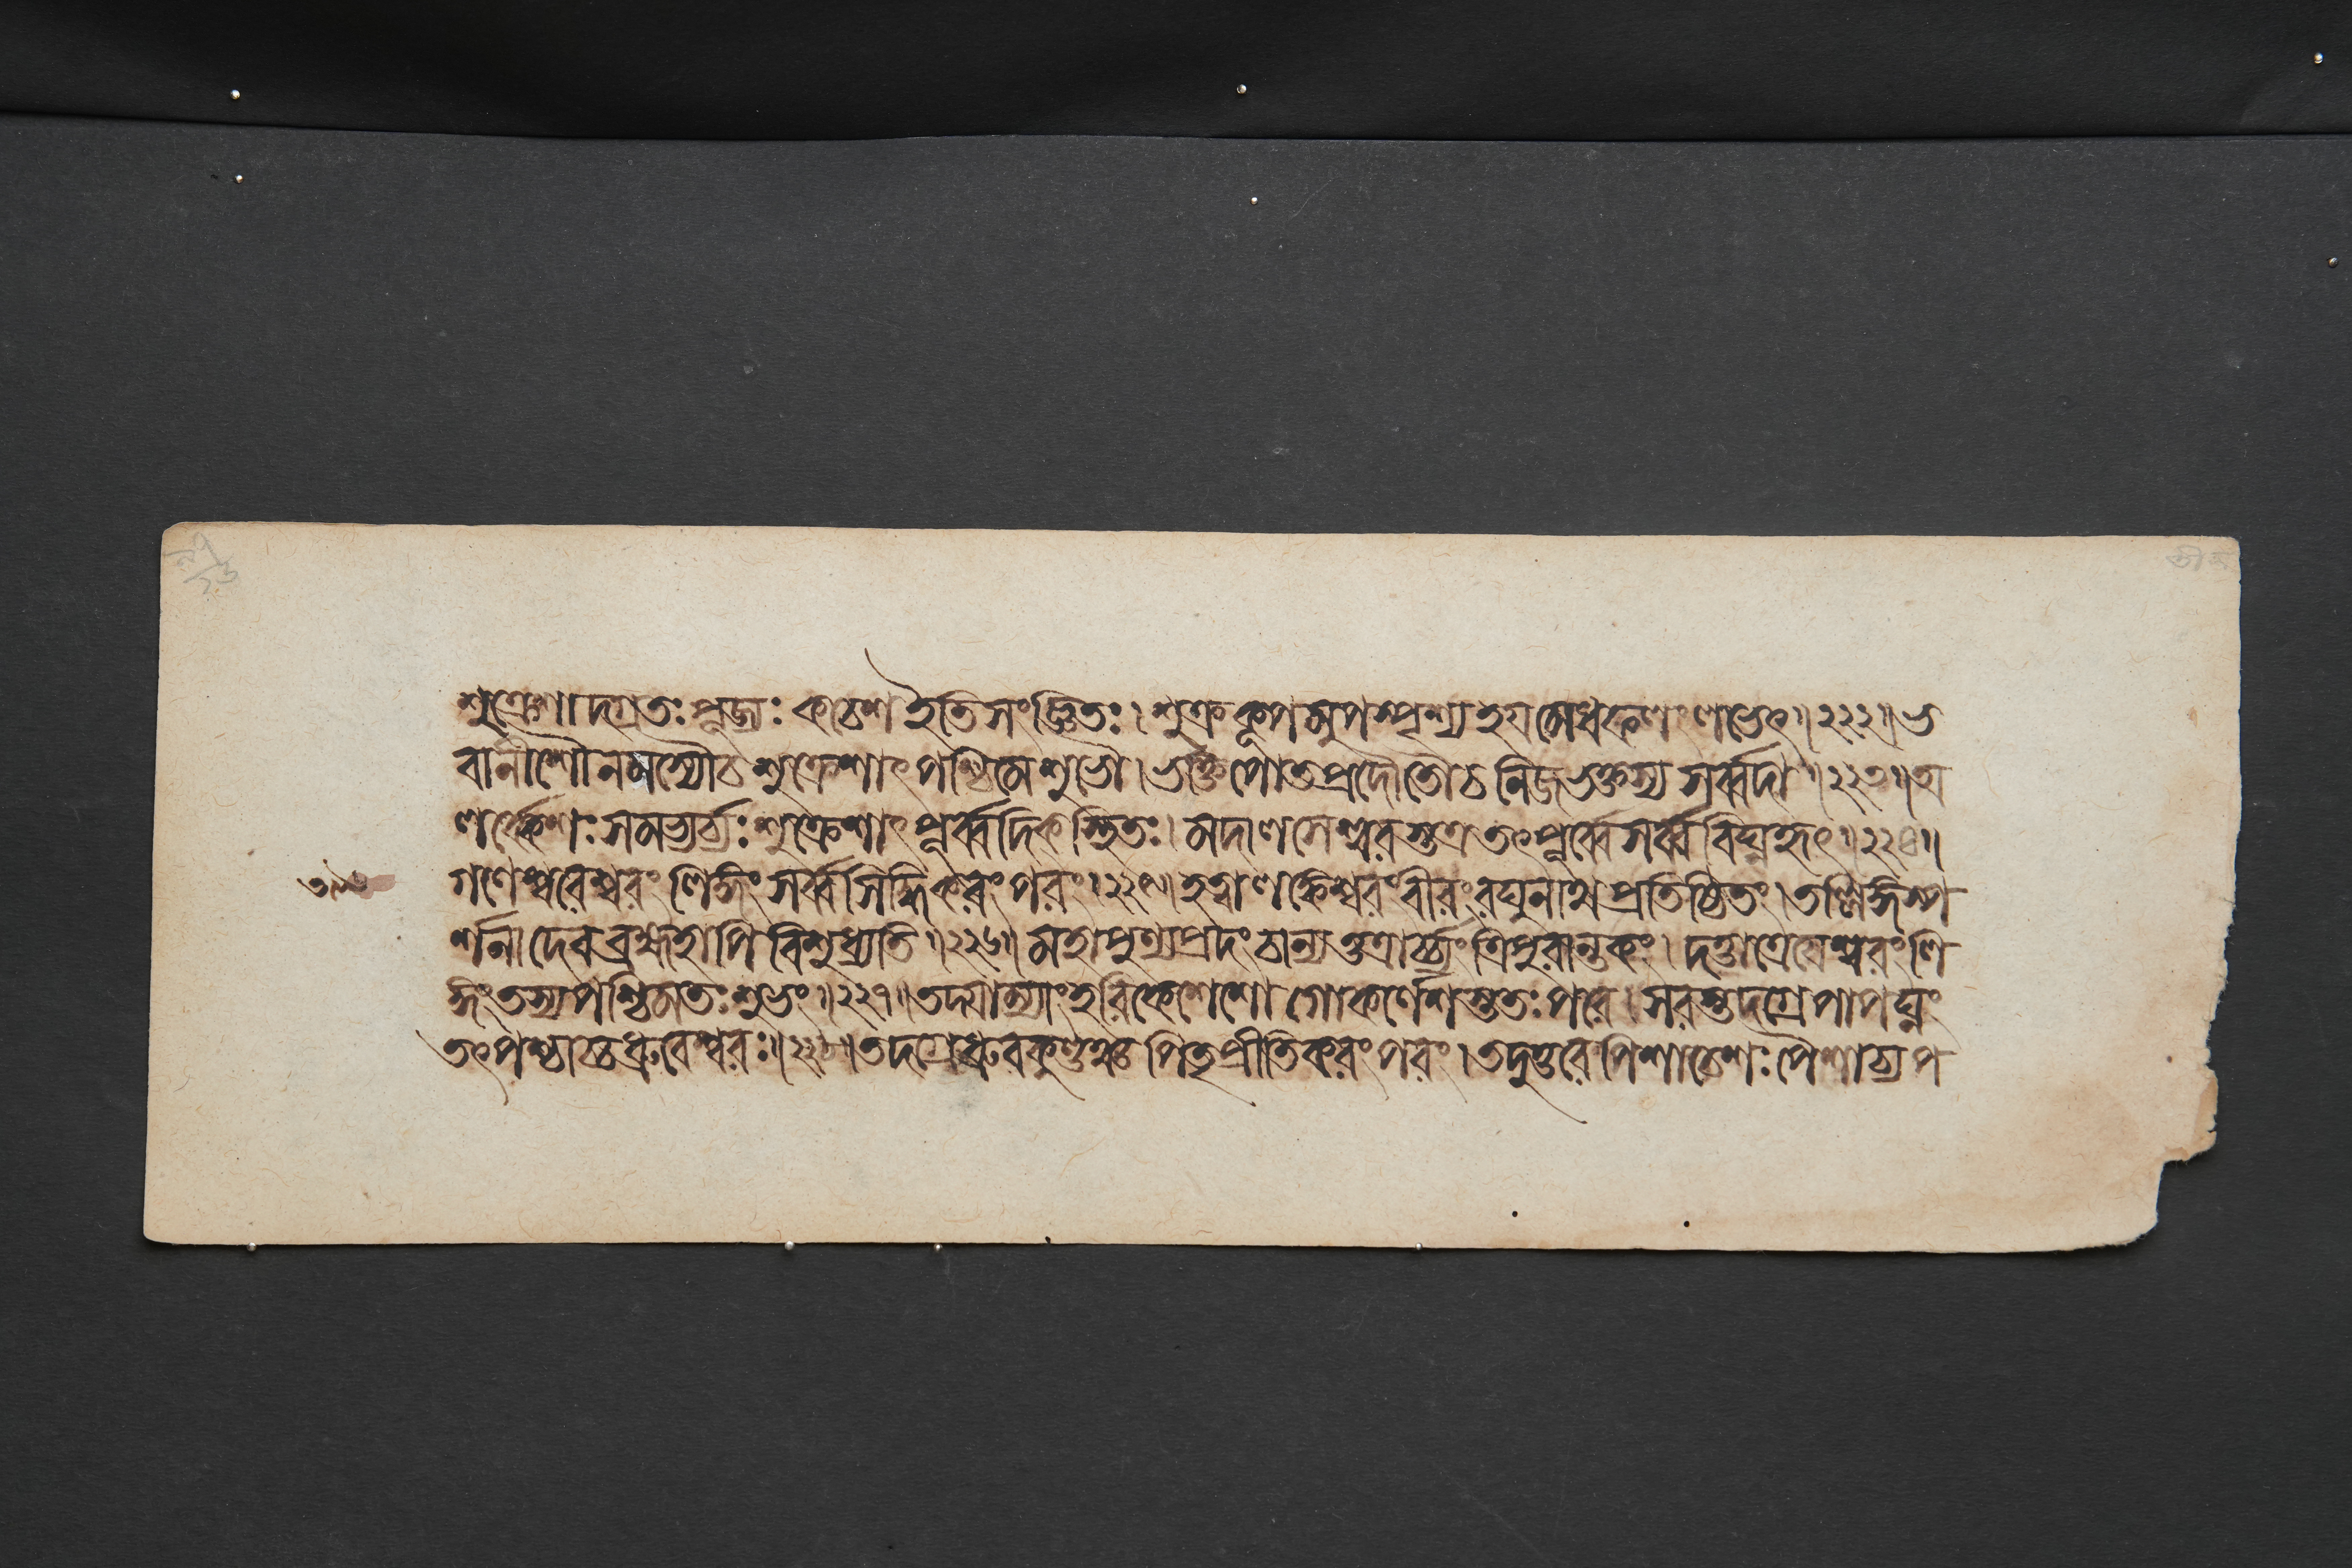 শুক্রেশাদগ্রতঃ পূজ্যঃ কচেশ ইতি সংজ্ঞিতঃ। শুক্রকূপমুপস্পৃশ্য হয়মেধফলং লভেৎ॥২২২॥ ভ
বানীশৌ নমস্যৌ চ শুক্রেশাৎ পশ্চিমে শুভৌ। ভক্ষ্যপোতপ্রদৌ তৌ চ নিজভক্তস্য সর্ব্বদা॥২২৩॥ অ
লর্ক্কেশঃ সমভ্যর্চ্যঃ শুক্রেশাৎ পূর্ব্বদিক্স্থিতঃ। মদালসেশ্বরস্তত্র তৎপূর্ব্বে সর্ব্ববিঘ্নহৃৎ॥২২৪॥
গণেশ্বরেশ্বরং লিঙ্গং সর্ব্বসিদ্ধিকরং পরং।২২৫॥ হত্বা লঙ্কেশ্বরং বীরং রঘুনাথপ্রতিষ্ঠিতং। তল্লিঙ্গস্প
র্শনাদেব ব্রহ্মহাপি বিশুধ্যতি॥২২৬॥ মহাপুণ্যপ্রদং চান্যত্তত্রার্চ্চ্যং ত্রিপুরান্তকং। দত্তাত্রেয়েশ্বরং লি
ঙ্গং তস্য পশ্চিমতঃ শুভং॥২২৭॥ তদ্যাম্যাং হরিকেশেশো গোকর্ণেশস্ততঃ পরে। সরস্তদগ্রে পাপঘ্নং
তৎপশ্চাচ্চ ধ্রুবেশ্বরঃ॥২২৮॥ তদগ্রে ধ্রুবকুণ্ডঞ্চ পিতৃপ্রীতিকরং পরং। তদুত্তরে পিশাচেশঃ পৈশাচ্যপ